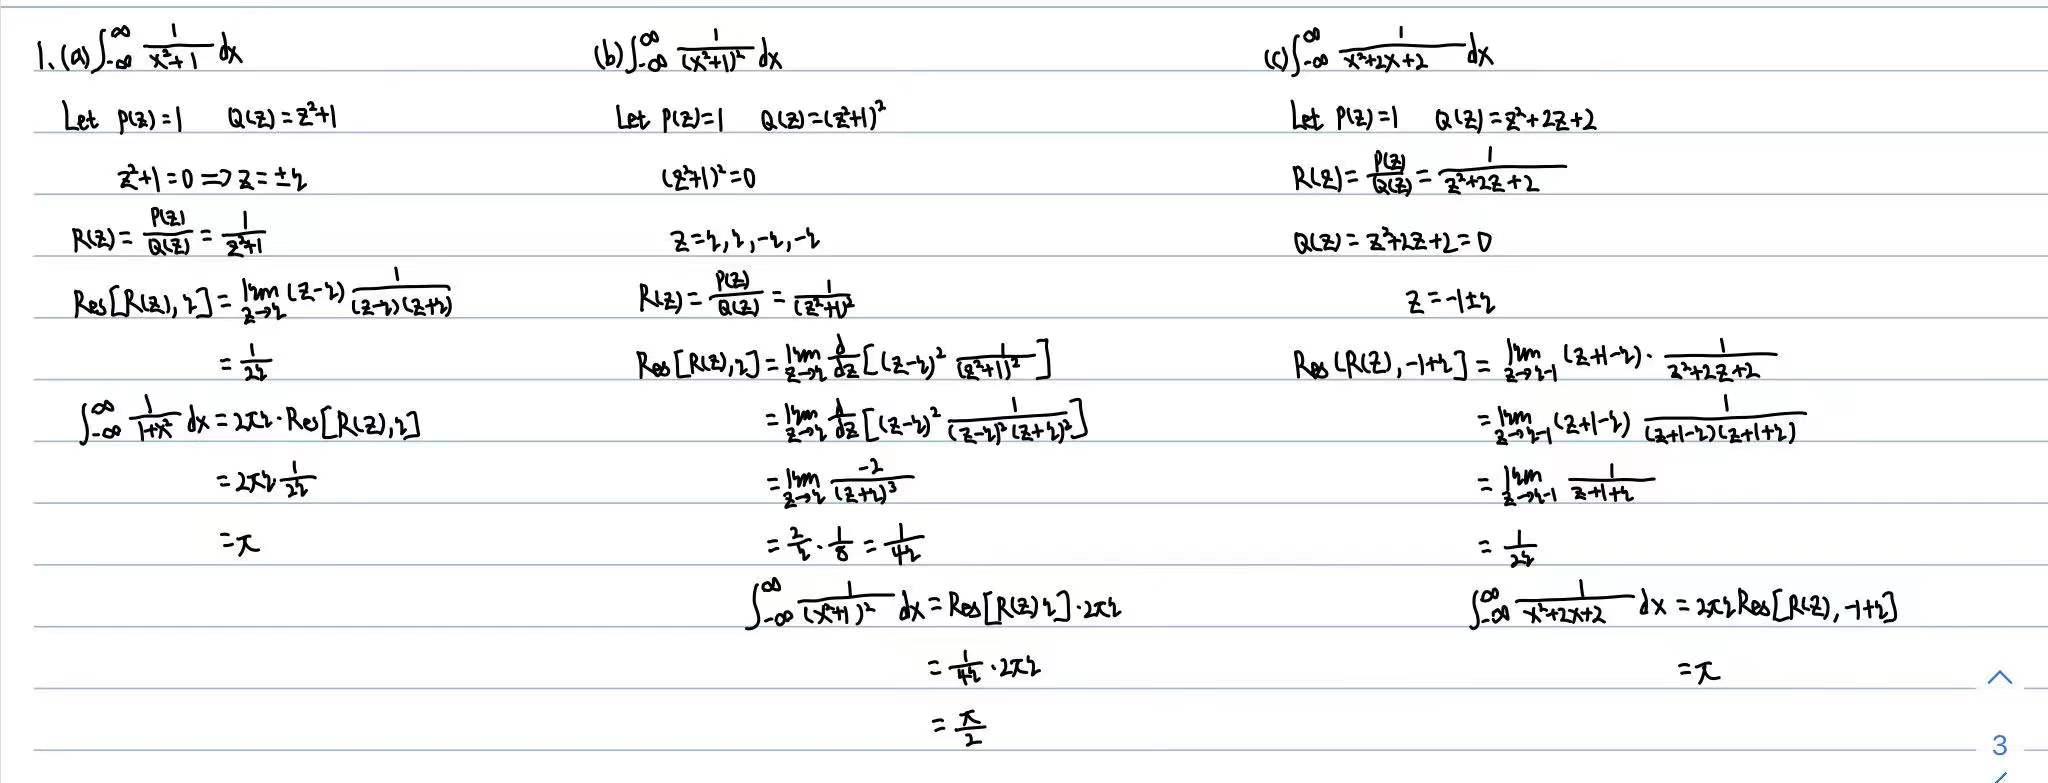 1. (a) ∫_{-∞}^{∞} \frac{1}{x²+1} dx
Let P(z)=1 Q(z)=z²+1
z²+1=0 ⇒ z=±i
R(z)=\frac{P(z)}{Q(z)}=\frac{1}{z²+1}
Res[R(z), i]=\lim_{z→i}(z-i)\frac{1}{(z-i)(z+i)}
=\frac{1}{2i}
∫_{-∞}^{∞} \frac{1}{1+x²} dx=2πi·Res[R(z), i]
=2πi \frac{1}{2i}
=π
(b) ∫_{-∞}^{∞} \frac{1}{(x²+1)²} dx
Let P(z)=1 Q(z)=(z²+1)²
(z²+1)²=0
z=i, i, -i, -i
R(z)=\frac{P(z)}{Q(z)}=\frac{1}{(z²+1)²}
Res[R(z), i]=\lim_{z→i}\frac{d}{dz}[(z-i)² \frac{1}{(z²+1)²}]
=\lim_{z→i}\frac{d}{dz}[(z-i)² \frac{1}{(z-i)²(z+i)²}]
=\lim_{z→i}\frac{-2}{(z+i)³}
=\frac{2}{i}·\frac{1}{8}=\frac{1}{4i}
∫_{-∞}^{∞} \frac{1}{(x²+1)²} dx=Res[R(z) i]·2πi
=\frac{1}{4i}·2πi
=\frac{π}{2}
(c) ∫_{-∞}^{∞} \frac{1}{x²+2x+2} dx
Let P(z)=1 Q(z)=z²+2z+2
R(z)=\frac{P(z)}{Q(z)}=\frac{1}{z²+2z+2}
Q(z)=z²+2z+2=0
z=-1±i
Res(R(z), -1+i]=\lim_{z→i-1}(z+1-i)·\frac{1}{z²+2z+2}
=\lim_{z→i-1}(z+1-i)\frac{1}{(z+1-i)(z+1+i)}
=\lim_{z→i-1}\frac{1}{z+1+i}
=\frac{1}{2i}
∫_{-∞}^{∞} \frac{1}{x²+2x+2} dx=2πi Res[R(z), -1+i]
=π
3